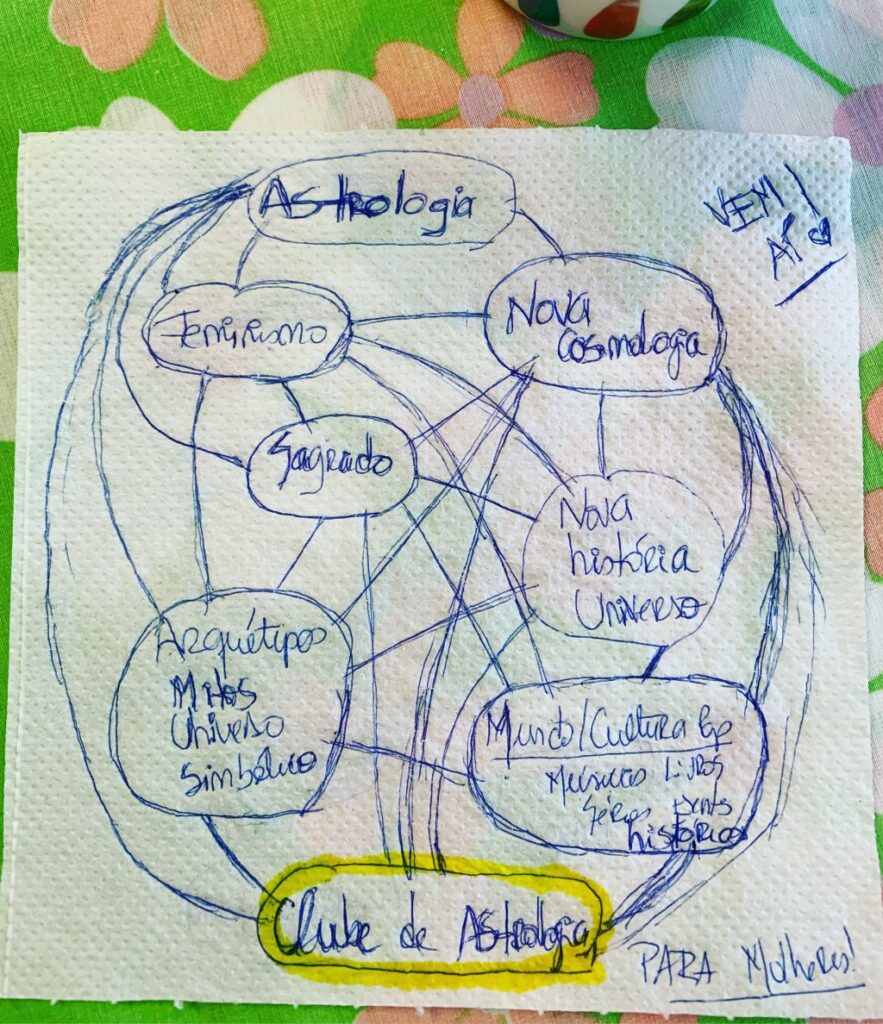 Astrologia
VEM
AÍ!
Feminismo
Nova
Cosmologia
Sagrado
Nova
história
Universo
Arquétipos
Mitos
Universo
Simbólico
Mundo/Cultura Pop
Músicas Livros
Séries
históricos
Clube de Astrologia
PARA Mulheres!